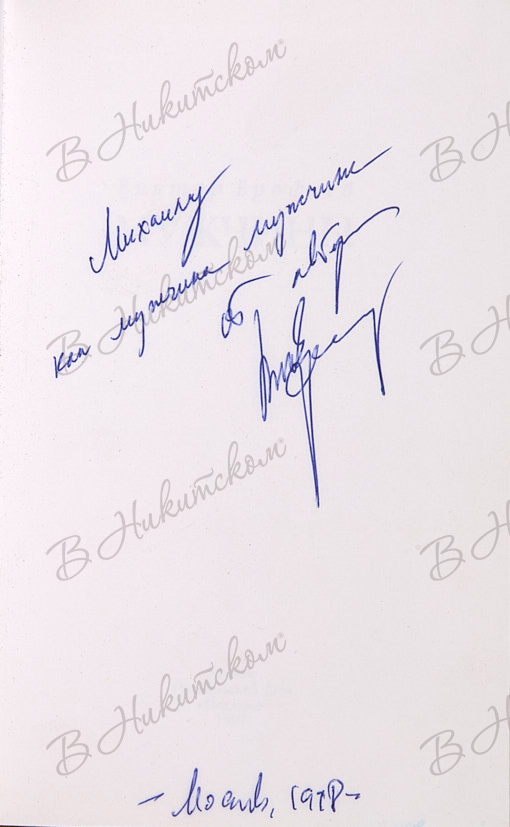 В Никитском
Михаилу
как мужчина мужчине
В Никитском
от автора
В Никитском
В Никитском
- Москва, 1998-